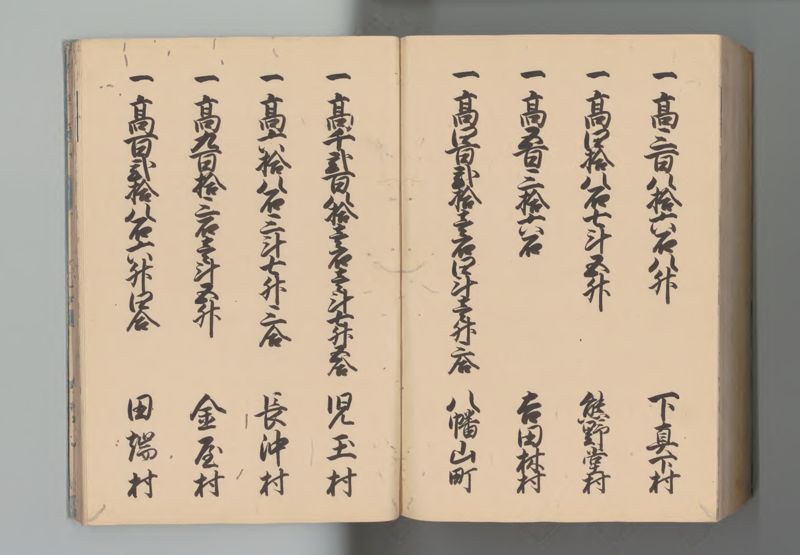 一 高三百八拾六石八升 下真下村
一 高四拾八石七斗五升 熊野堂村
一 高五百三拾六石 吉田林村
一 高四百弐拾壱石四斗壱升二合 八幡山町
一 高千弐百八拾壱石壱斗七升五合 児玉村
一 高六拾八石三斗七升三合 長沖村
一 高九百拾三石壱斗五升 金屋村
一 高百弐拾八石六升四合 田端村